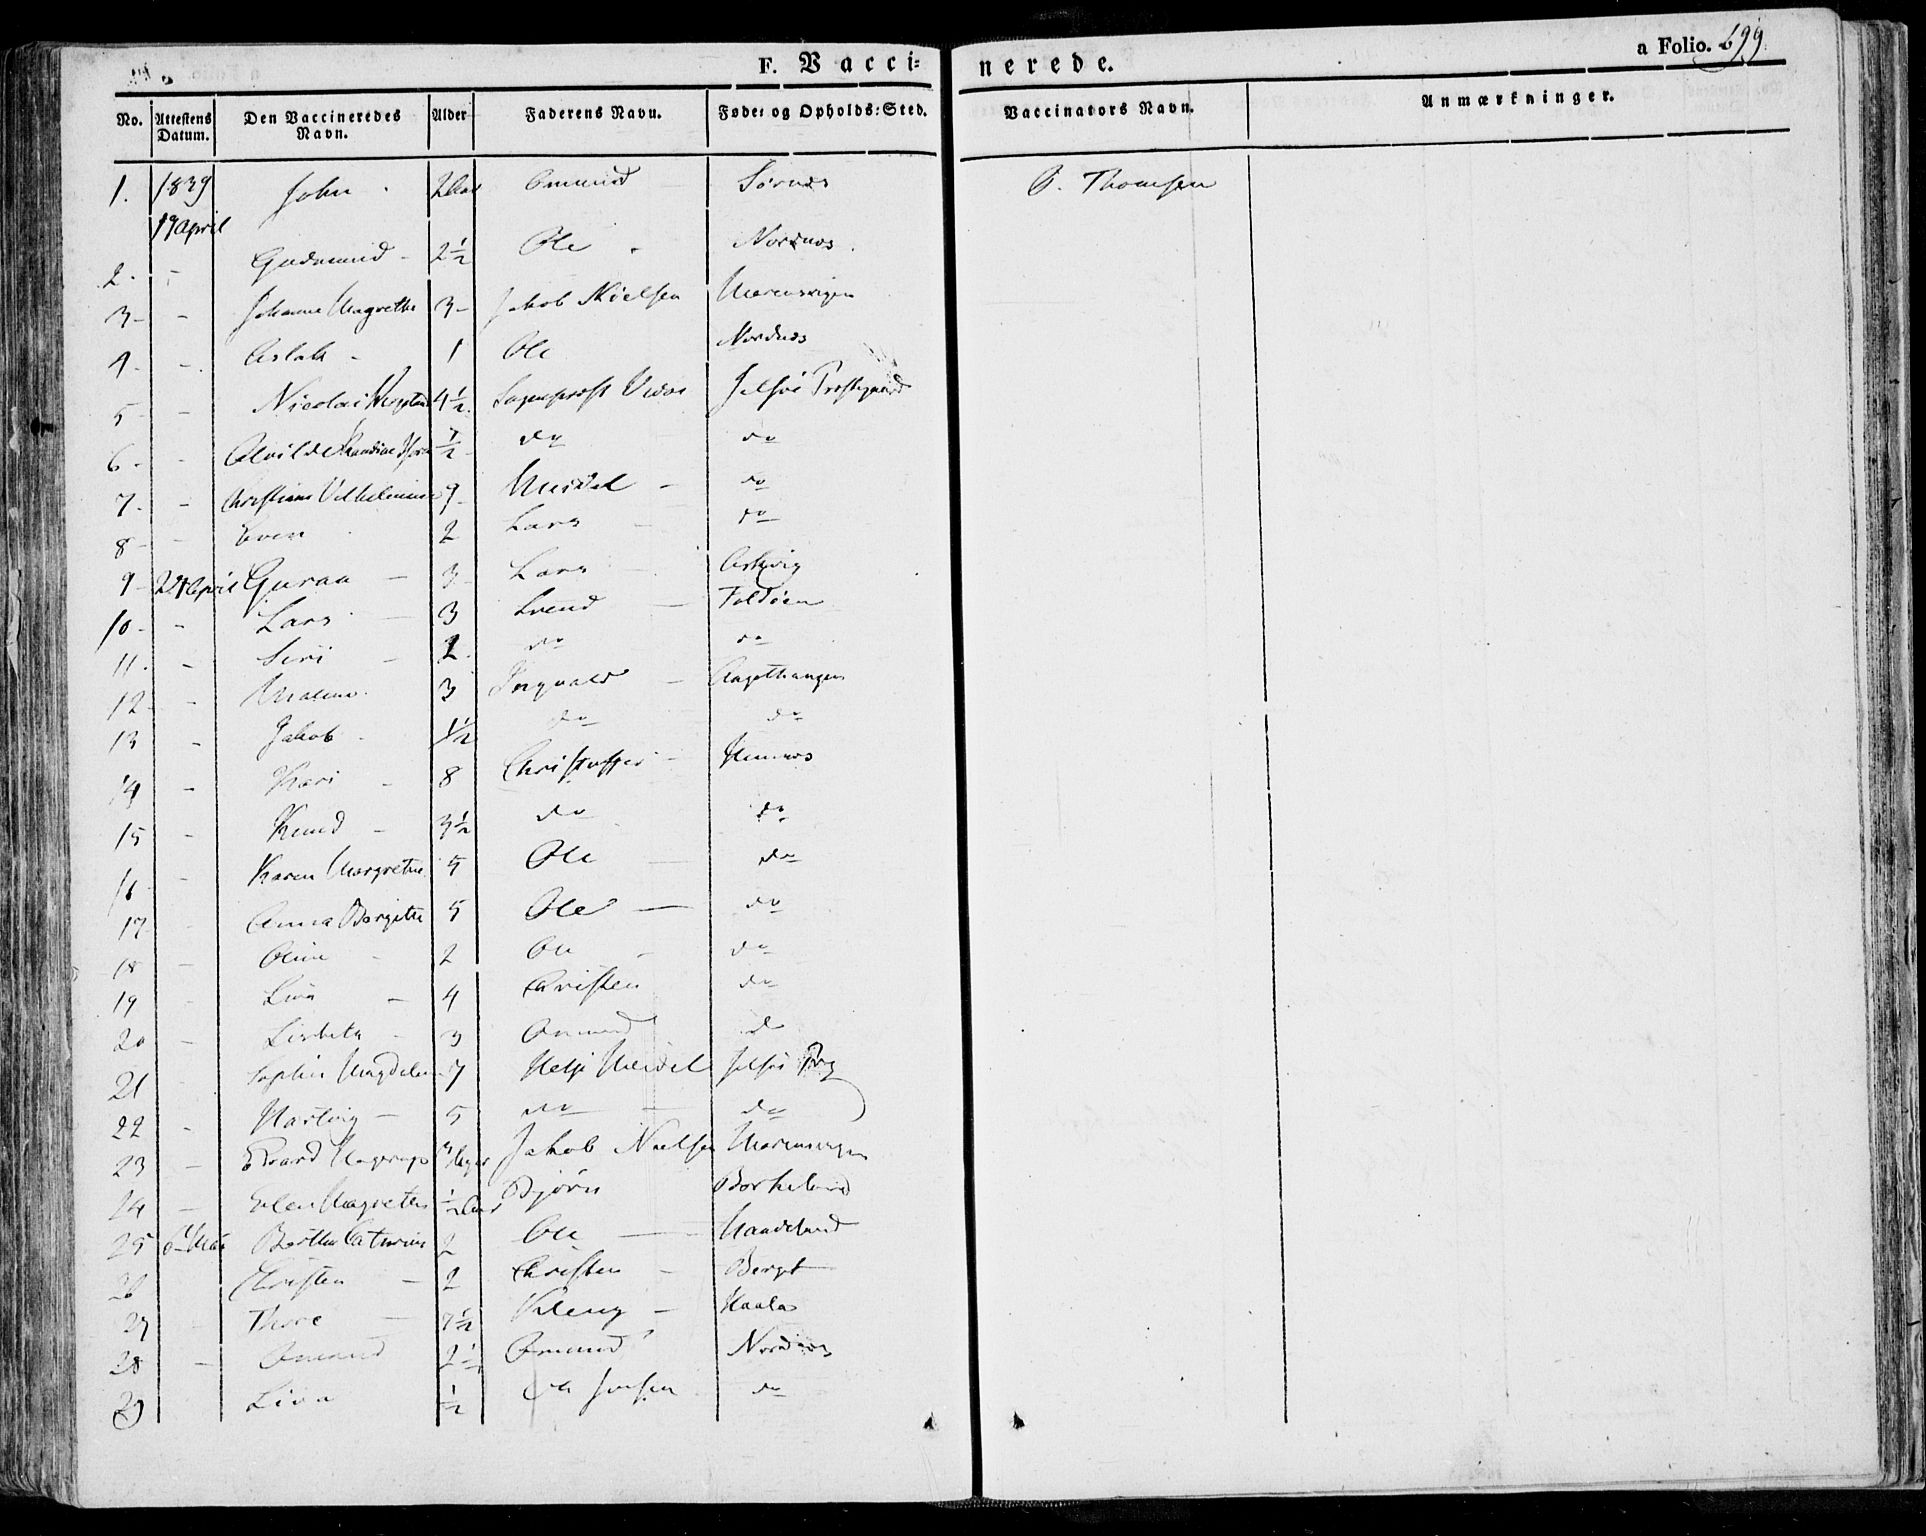 F. Vaccinerede.
a Folio. 699
No. Attestens Datum. Den Vaccineredes Navn. Alder Faderens Navn. Føde- og Opholds-Sted. Vaccinators Navn. Anmærkninger.
1. 1839 19 April John 2 Aar Omund Sørnæs Thomsen
2. - Gudmund - 2½ Ole Nordnæs
3 - - Johanne Magrethe 3 - Jakob Nielsen Marensvigen
4. - Aslak - 1 Ole Nordnæs
5 - - Nicolai 4½ Sogneprost Jelsøe Præstegaard
6 - - ½ do do
7. - Christiane Vilhelmine 9 - Meidel - do
8 - - Even 2 Lars - do
9 - 24 April Guraa - 3 - Lars - Askvig
10 - - Lars - 3 Svend - Foldøen
11. - Siri - 2. do do
12 - - Malene 3 Ingvald -
13 - Jakob 1½ do do
14 - Kari - 8 Christoffer -
15 - Knud - 3½ do do
16 - - Karen Margrethe 5 Ole - do
17 - Anna Borgithe 5 Ole - do
18 - Oline - 2 Ole - do
19 - Liva - 4 Christen do
20 - Lisbeth - 3 Omund do
21 Sophie Magdelene 7 Helje Meidel Jelsøe Prg
22 - Hartvig - 5 do - do
23 - Edvard Hagerup Jakob Nielsen Marensvigen
24 - Elen Magrethe ½ Aar Bjørn Borkeland
25 6 Mai Berthe Cathrine 2 Ole - Haadeland
26 Christen - 2 Christen - Berget
27 - Thore - 7½ Kleng - Haalas
28 - Omund 2½ Omund Nordnæs
29 Liva ½ Ole Jonsen do